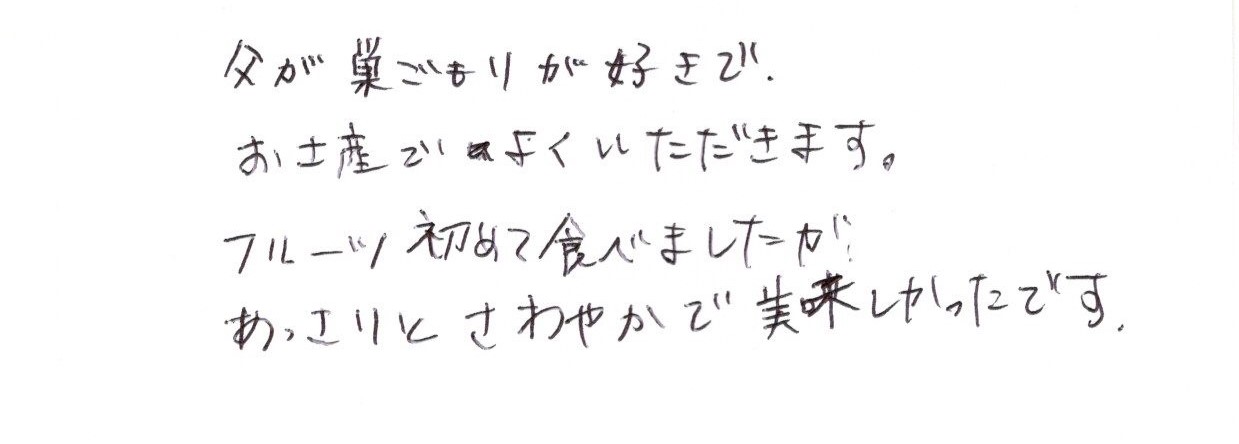 父が巣ごもりが好きで、
お土産でよくいただきます。
フルーツ初めて食べましたが、
あっさりとさわやかで美味しかったです。